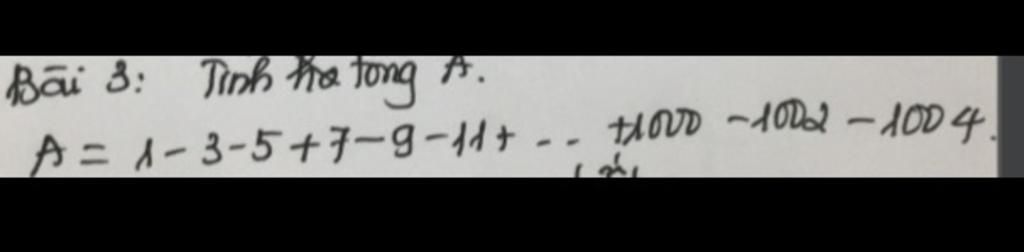 Bài 3: Tính tổng A.
A = 1 - 3 - 5 + 7 - 9 - 11 + ... + 1000 - 1002 - 1004.